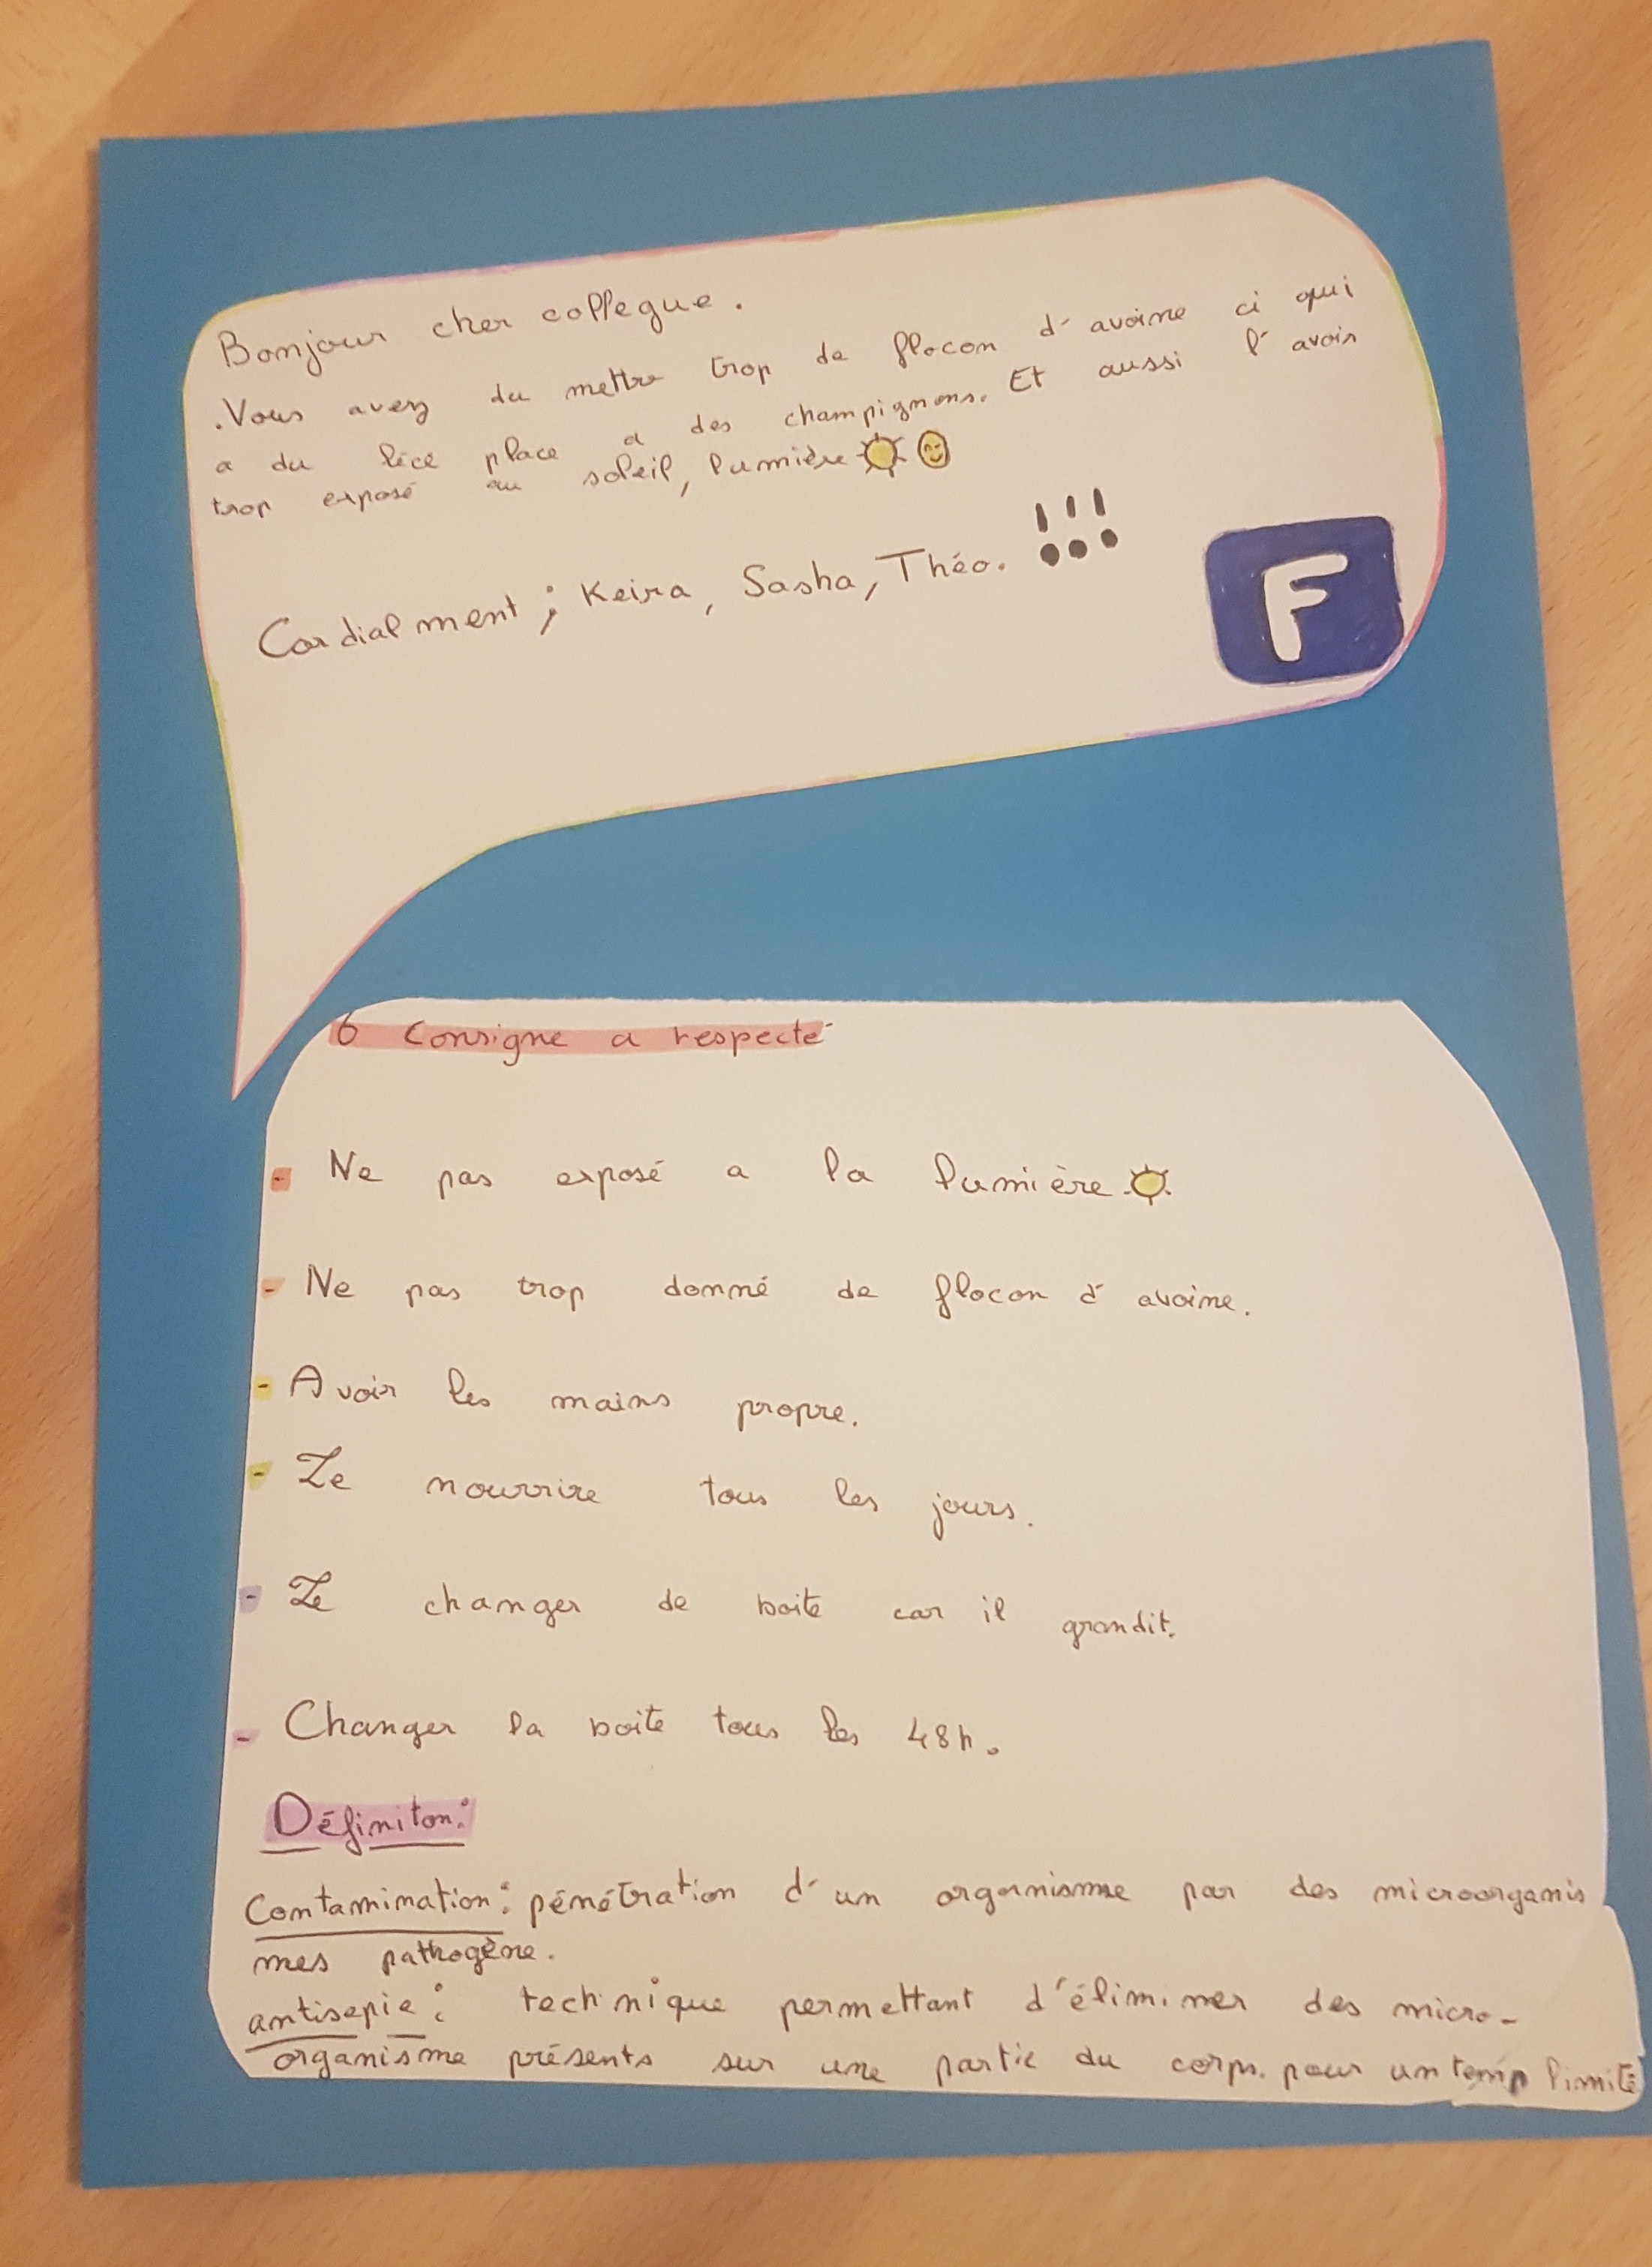 Bonjour cher collegue.
.Vous avez du mettre trop de flocon d'avoine ci qui
a du place a des champignons. Et aussi l'avoir
trop exposé au soleil, lumière
Cordialment ; Keira, Sasha, Théo. !!!
F
6 Consigne a respecté
- Ne pas exposé a la lumière.
- Ne pas trop donné de flocon d'avoine.
- Avoir les mains propre.
- Le nourrire tous les jours.
- Le changer de boite car il grandit.
- Changer la boite tous les 48h.
Définiton:
Contamination: pénétration d'un organisme par des microorganis
mes pathogène.
antisepie: technique permettant d'éliminer des micro-
organisme présents sur une partie du corps. pour un temp limité